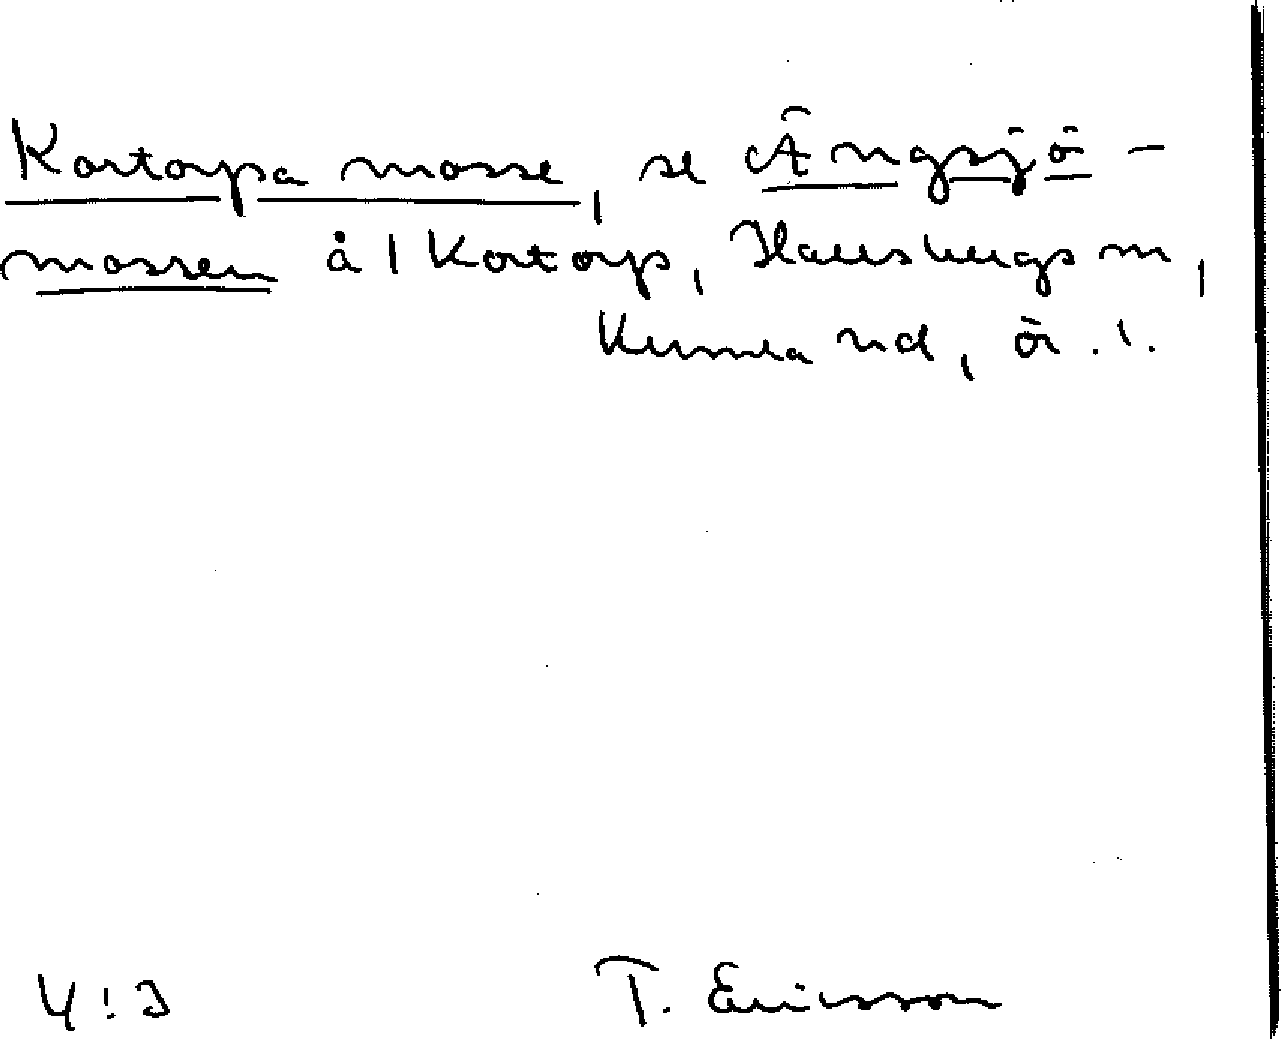 Kortorpa mosse, se Ängsjö-
mossen å 1 Kortorp, Hallsbergs sn,
Kumla hd, Ör. l.
4:3 T. Ericsson